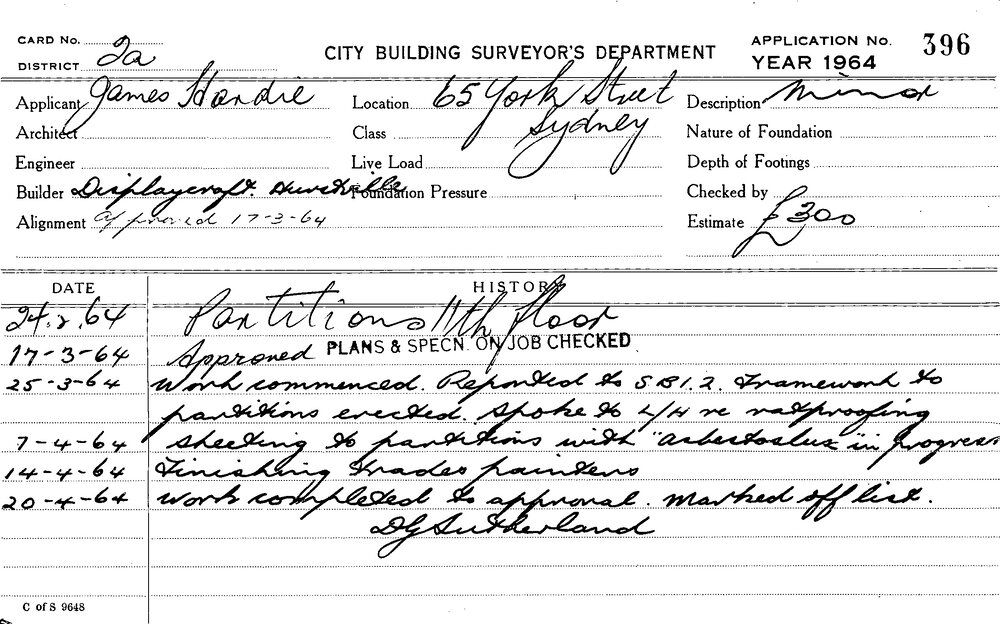 CARD No. 2a
CITY BUILDING SURVEYOR'S DEPARTMENT
APPLICATION No. 396
DISTRICT
YEAR 1964
Applicant James Hardie
Location 65 York Street
Description Minor
Architect
Class Sydney
Nature of Foundation
Engineer
Live Load
Depth of Footings
Builder Displaycraft. Hurstville
Foundation Pressure
Checked by
Alignment approved 17-3-64
Estimate £300
DATE HISTORY
24.2.64 Partitions 11th floor
17-3-64 Approved PLANS & SPECN. ON JOB CHECKED
25-3-64 Work commenced. Reported to S.B.I.2. Framework to
partitions erected. Spoke to L/H re ratproofing
7-4-64 Sheeting to partitions with "asbestoslux" in progress
14-4-64 Finishing trades painters
20-4-64 Work completed to approval. Marked off list.
DG Sutherland
C of S 9648